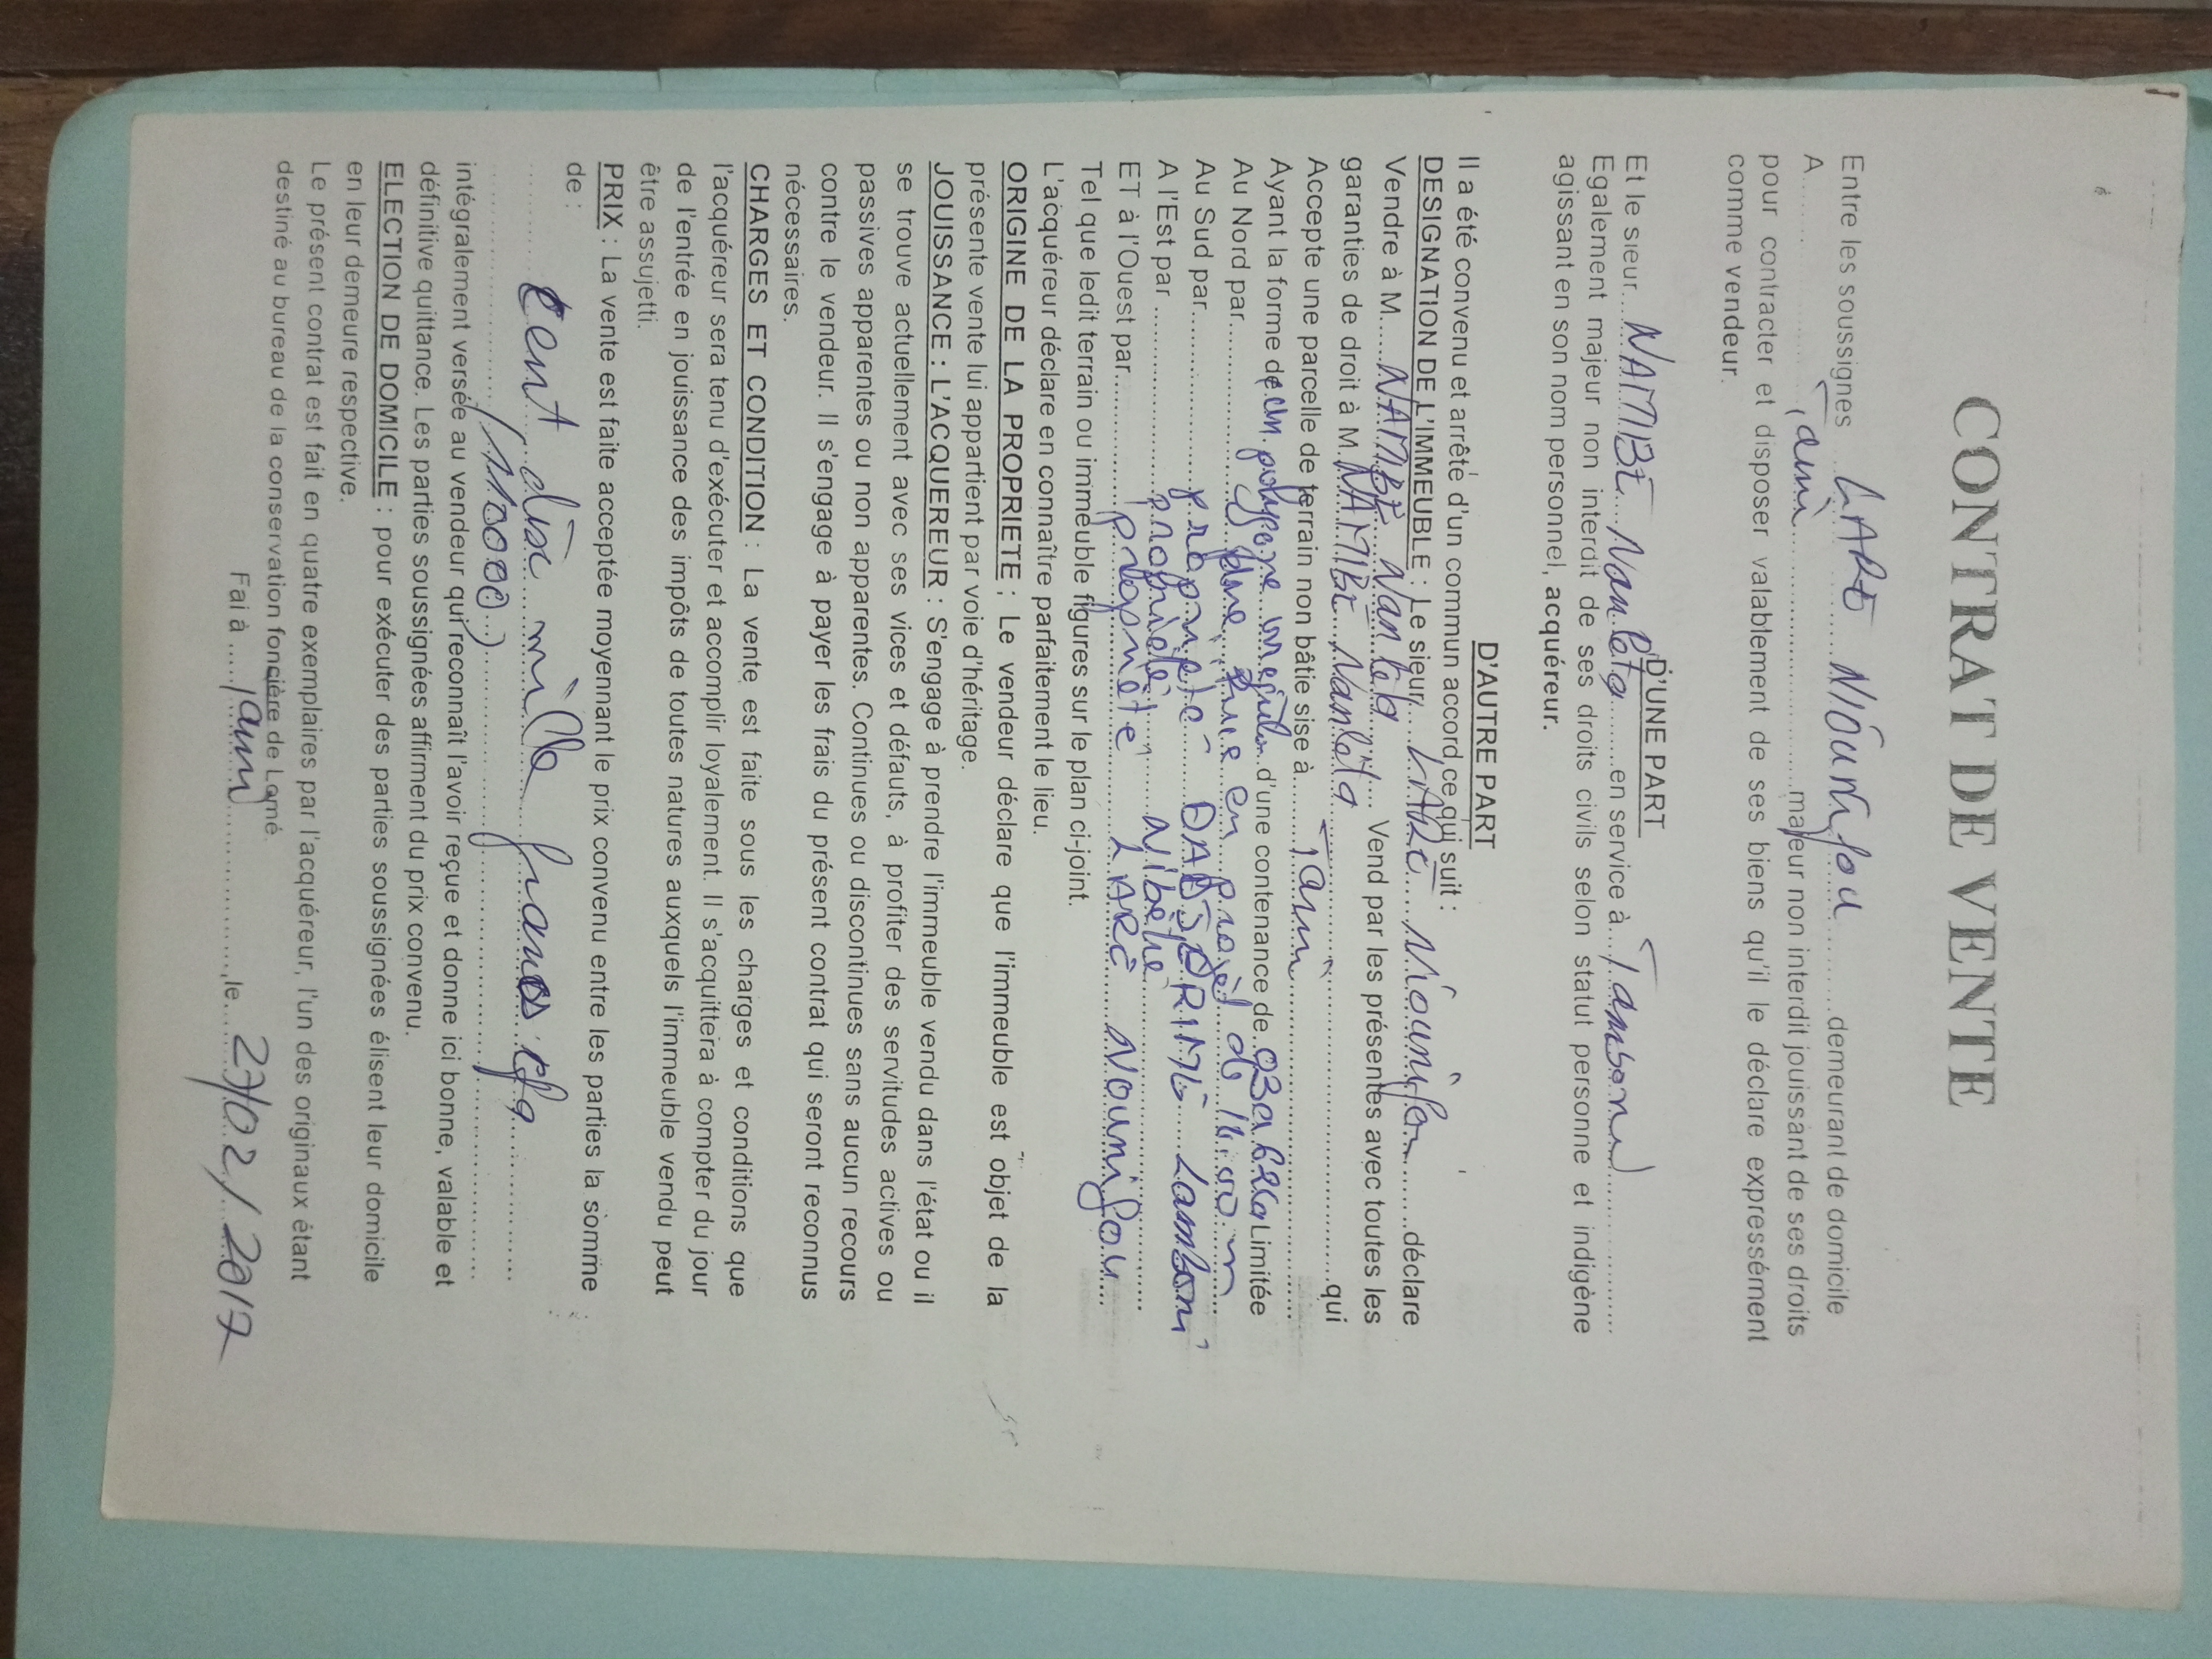 CONTRAT DE VENTE
Entre les soussignés LARE NIOUNIfou demeurant de domicile
A Tami majeur non interdit jouissant de ses droits
pour contracter et disposer valablement de ses biens qu'il le déclare expressément
comme vendeur.
D'UNE PART
Et le sieur NAMBE Nanléta en service à
Egalement majeur non interdit de ses droits civils selon statut personne et indigène
agissant en son nom personnel, acquéreur.
D'AUTRE PART
Il a été convenu et arrêté d'un commun accord ce qui suit :
DESIGNATION DE L'IMMEUBLE : Le sieur LARE Niounifou déclare
Vendre à M. NAMBE Nanléta Vend par les présentes avec toutes les
garanties de droit à M. NAMBE Nanléta qui
Accepte une parcelle de terrain non bâtie sise à Tami
Ayant la forme de un polygone irrégulier d'une contenance de Limitée
Au Nord par d'une rue en projet de 16.00 m
Au Sud par propriété Lamboni
A l'Est par propriété
ET à l'Ouest par propriété LARE Niounifou
Tel que ledit terrain ou immeuble figures sur le plan ci-joint.
L'acquéreur déclare en connaître parfaitement le lieu.
ORIGINE DE LA PROPRIETE : Le vendeur déclare que l'immeuble est objet de la
présente vente lui appartient par voie d'héritage.
JOUISSANCE : L'ACQUEREUR : S'engage à prendre l'immeuble vendu dans l'état ou il
se trouve actuellement avec ses vices et défauts, à profiter des servitudes actives ou
passives apparentes ou non apparentes. Continues ou discontinues sans aucun recours
contre le vendeur. Il s'engage à payer les frais du présent contrat qui seront reconnus
nécessaires.
CHARGES ET CONDITION : La vente est faite sous les charges et conditions que
l'acquéreur sera tenu d'exécuter et accomplir loyalement. Il s'acquittera à compter du jour
de l'entrée en jouissance des impôts de toutes natures auxquels l'immeuble vendu peut
être assujetti.
PRIX : La vente est faite acceptée moyennant le prix convenu entre les parties la somme
de :
cent dix mille francs cfa
(110000)
intégralement versée au vendeur qui reconnaît l'avoir reçue et donne ici bonne, valable et
définitive quittance. Les parties soussignées affirment du prix convenu.
ELECTION DE DOMICILE : pour exécuter des parties soussignées élisent leur domicile
en leur demeure respective.
Le présent contrat est fait en quatre exemplaires par l'acquéreur, l'un des originaux étant
destiné au bureau de la conservation foncière de Lomé.
Fai à Tami, le 27/02/2017